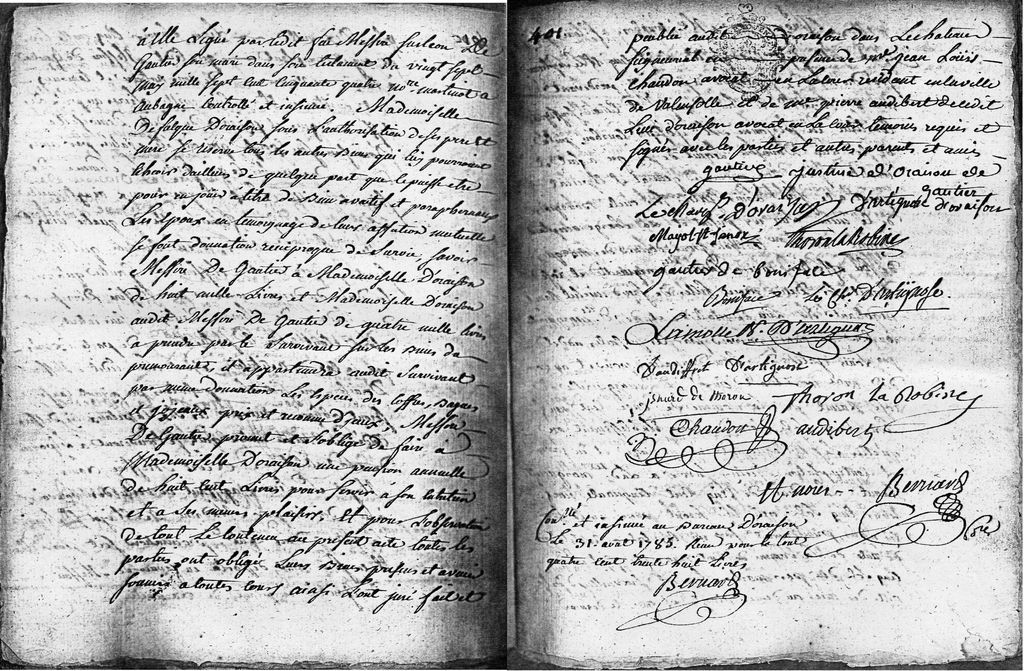 à elle Legué par ledit feu Messire furleon De
Gautier son mary dans son testament du vingt sept
may mille sept cent cinquante quatre no.re martinot a
aubagne Controllé et insinué. Mademoiselle
De Doraison sous L'authorisation de ses pere et
mere se reserve tous les autres Biens qui luy pourroient
echeoir d'ailleurs de quelque part que ce puisse etre
pour en jouir a titre de Bien avantif et paraphernaux
Les Epoux en temoignage de leurs affection mutuelle
se font donnation réciproque de Survie savoir
Messire De Gautier à Mademoiselle Doraison
de huit mille Livres et Mademoiselle Doraison
audit Messire De Gautier de quatre mille livres
a prendre par le Survivant sur les Biens du
premourant, et appartiendra audit Survivant
par meme donnation Les especes, des coffres, Bagues
et joyeaux prix et reconnu D'eux, Messire
De Gautier promet et s'oblige de faire à
Mademoiselle Doraison une pension annuelle
de huit cent Livres pour servir à son entretien
et a ses menus plaisirs. Et pour l'observation
de tout Le contenu au present acte toutes les
parties ont obligé Leurs Biens presens et avenir
soumis a toutes cours ainsi L'ont juré fait et
401
publié audit oraison dans Le chateau
seigneurial en presence de Mr. jean Louis
chaudon avocat en La cour residant en la ville
de Valensolle et de Mre pierre audibert de cedit
Lieu d'oraison avocat en La Cour temoins requis et
signés avec les parties et autres parents et amis
gautier justine d'Oraison de
gautier
Le Marq.s D'oraison D'artigues d'oraison
Mayol St simon Thoron la Robine
gautier de boniface
Boniface Le Ch. D'artignose
Lamotte D'artigues
Vaudiffret D'artignose
de moron Thoron la Robine
Chaudon audibert
et nous Bernard
Con.llé et insinué au Bureau D'oraison No.re
Le 31. aout 1785. Reçu pour le tout
quatre cent trente huit Livres
Bernard